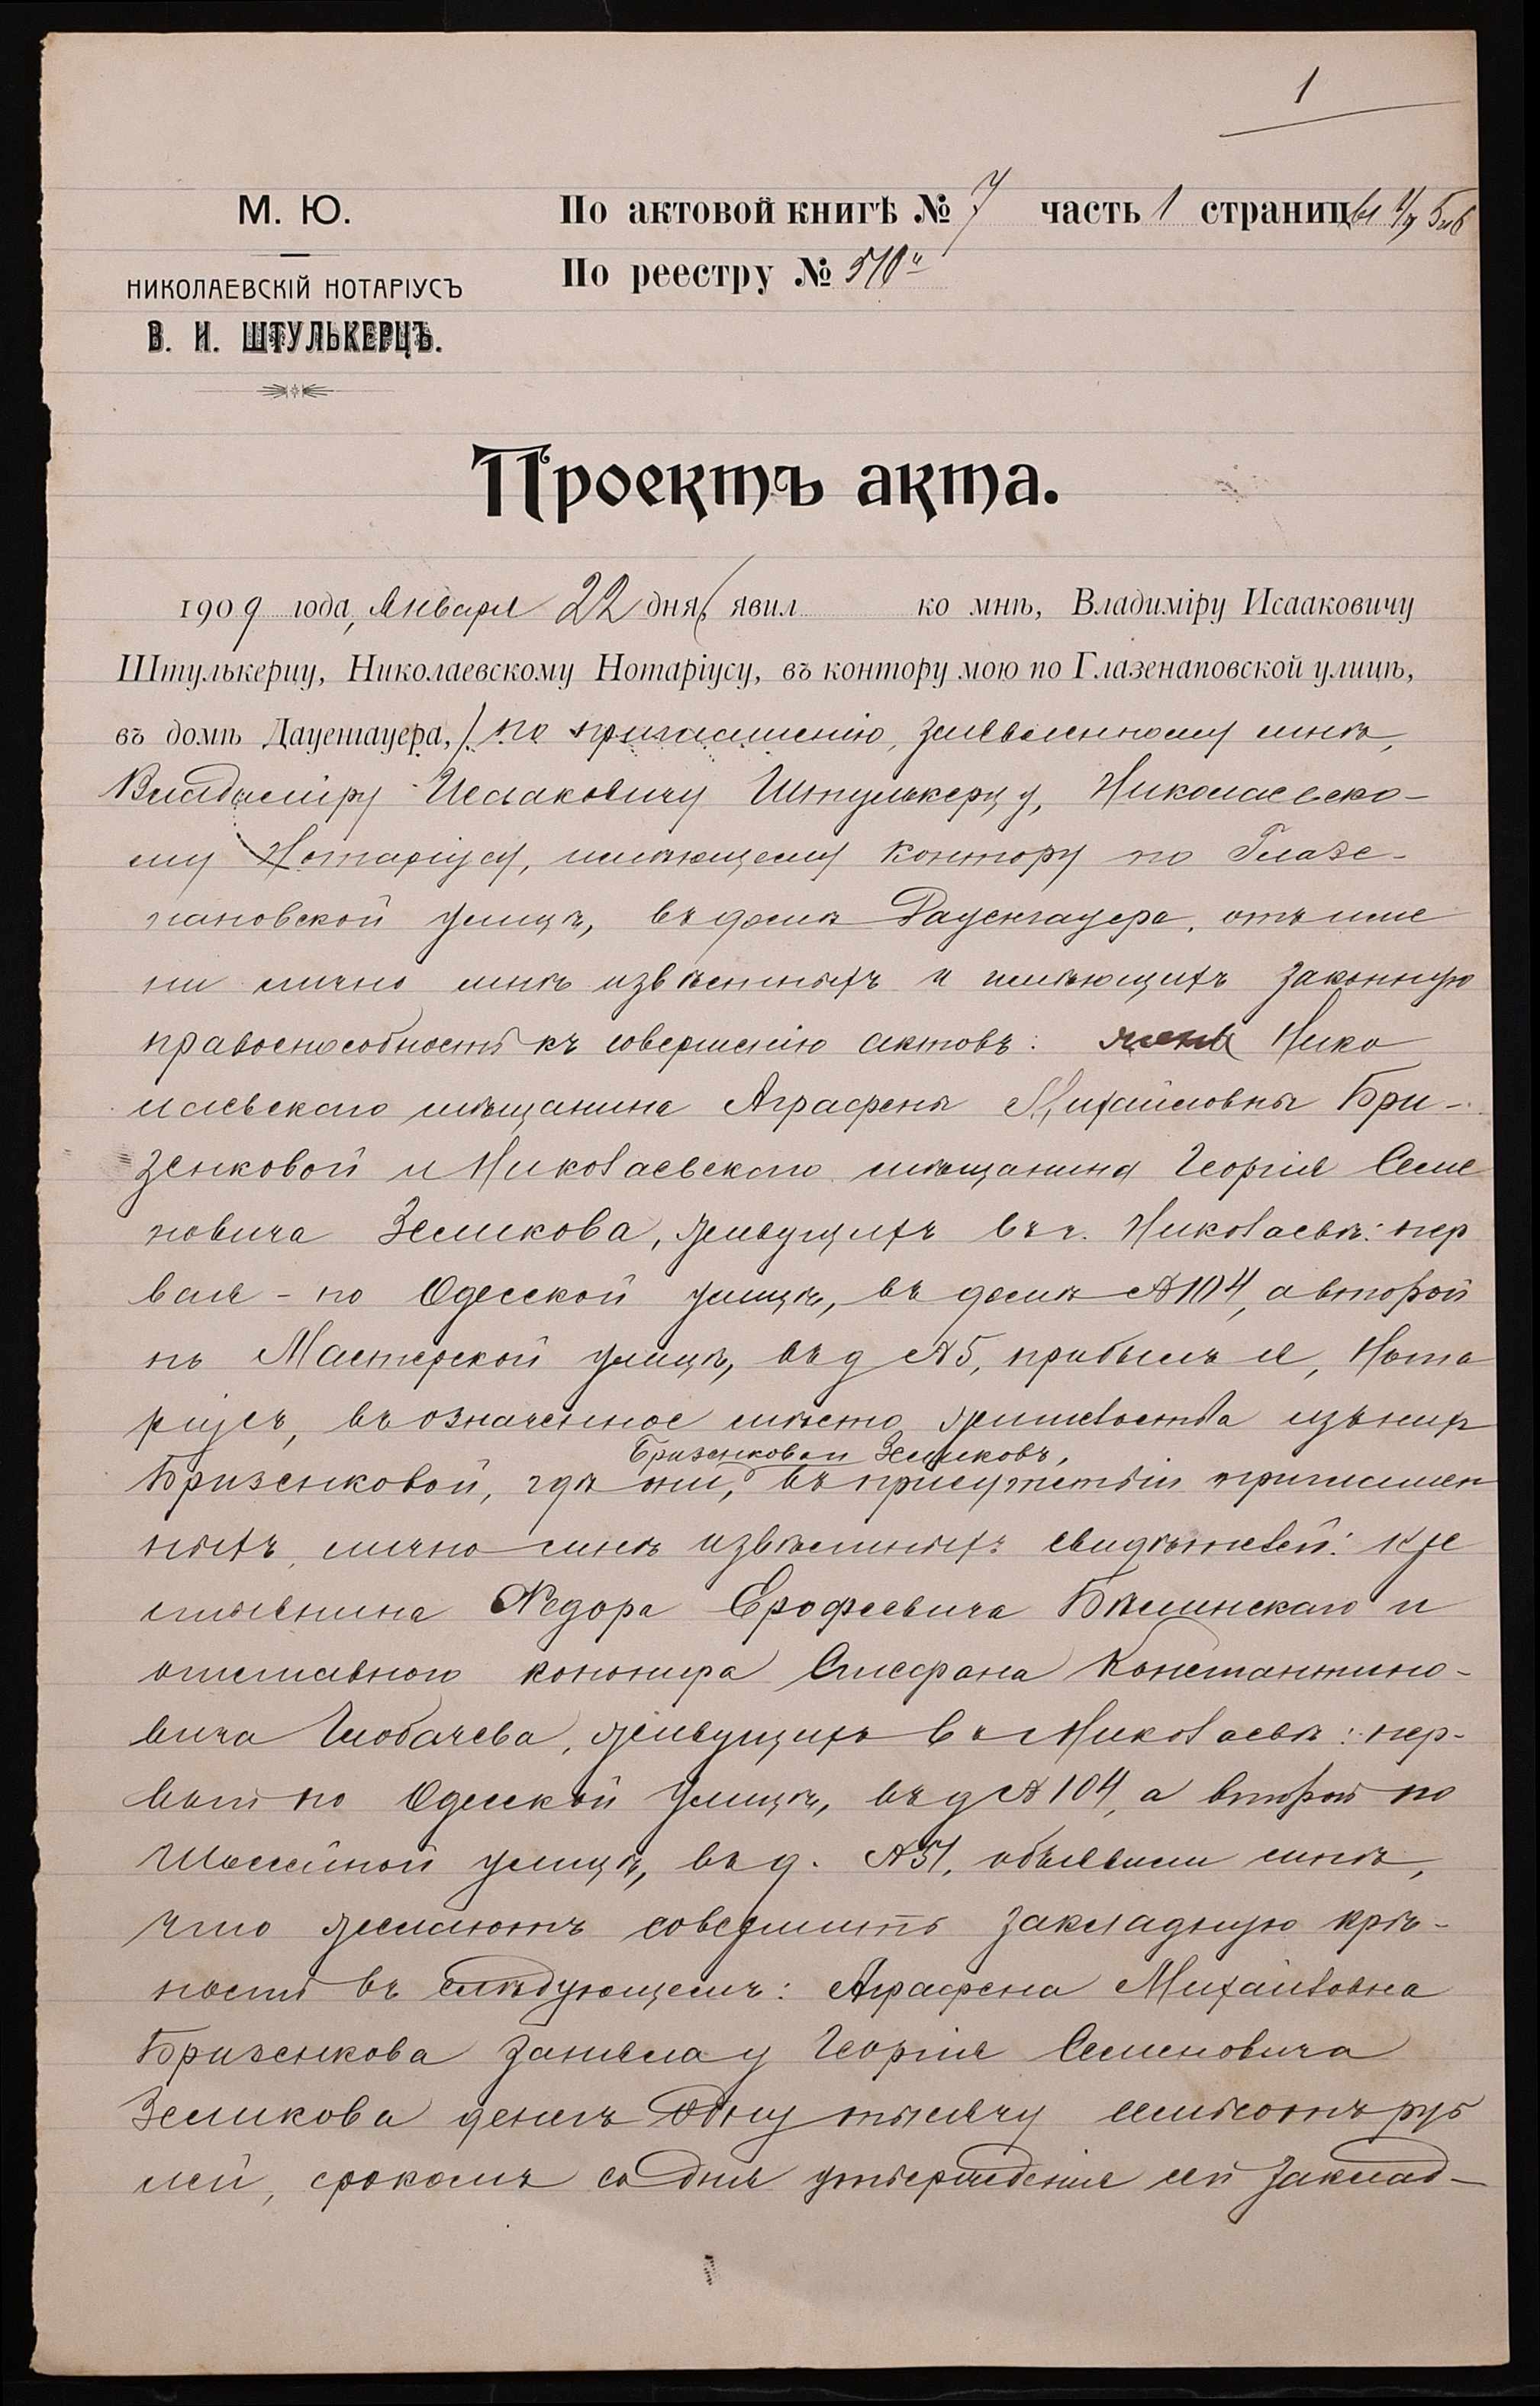 1
М. Ю.
НИКОЛАЕВСКІЙ НОТАРІУСЪ
В. И. ШТУЛЬКЕРЦЪ.
По актовой книгѣ № 7 часть 1 страниц
По реестру № 510
Проектъ акта.
1909 года, Января 22 дня, ( явил ко мнѣ, Владиміру Исааковичу
Штулькерцу, Николаевскому Нотаріусу, въ контору мою по Глазенаповской улицѣ,
въ домѣ Даценгауера, ) по приглашенію, заявленному мнѣ,
Владиміру Исааковичу Штулькерцу, Николаевско-
му Нотаріусу, имѣющему контору по Глазе-
наповской улицѣ, въ домѣ Даценгауера, отъ име
ни лично мнѣ извѣстныхъ и имѣющихъ законную
правоспособность къ совершенію актовъ: жены Нико
лаевскаго мѣщанина Аграфены Михайловны Бри-
зенковой и Николаевскаго мѣщанина Георгія Семе
новича Земликова, живущихъ въ г. Николаевѣ: пер
вая - по Одесской улицѣ, въ домѣ № 104, а второй
по Мастерской улицѣ, въ д № 5, прибылъ я, Нота
ріусъ, въ означенное мѣсто жительства изъ нихъ
Бризенковой и Земликовъ,
Бризенковой, гдѣ они, въ присутствіи приглашен
ныхъ, лично мнѣ извѣстныхъ свидѣтелей: кре
стьянина Ѳедора Ерофеевича Бѣлинскаго и
отставного канонира Стефана Константино-
вича Глобачева, живущихъ въ Николаевѣ: пер-
вый по Одесской улицѣ, въ д № 104, а второй по
Шоссейной улицѣ, въ д. № 51, объявили мнѣ,
что желаютъ совершить закладную крѣ-
пость въ слѣдующемъ: Аграфена Михайловна
Бризенкова заняла у Георгія Семеновича
Земликова денегъ одну тысячу семьсотъ руб
лей, срокомъ со дня утвержденія сей заклад-